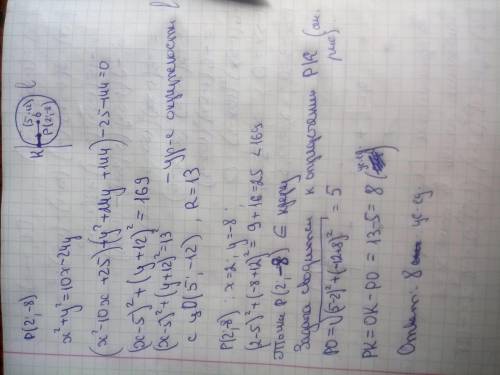 P(2;-8)
x²+y²=10x-24y
(x²-10x+25)+(y²+24y+144)-25-144=0
(x-5)²+(y+12)²=169
(x-5)²+(y+12)²=13² - ур-е окружности l
с ц O(5;-12), R=13
K (5;-12) O P(2;-8) l
P(2;-8): x=2; y=-8:
(2-5)²+(-8+12)²=9+16=25<169
Точка P(2;-8) ∈ кругу
Задача сводится к определению PK (см. рис)
PO=√(5-2)²+(-12+8)² = 5
PK=OK-PO=13-5=8 (усл.ед)
Ответ: 8 ус.ед.